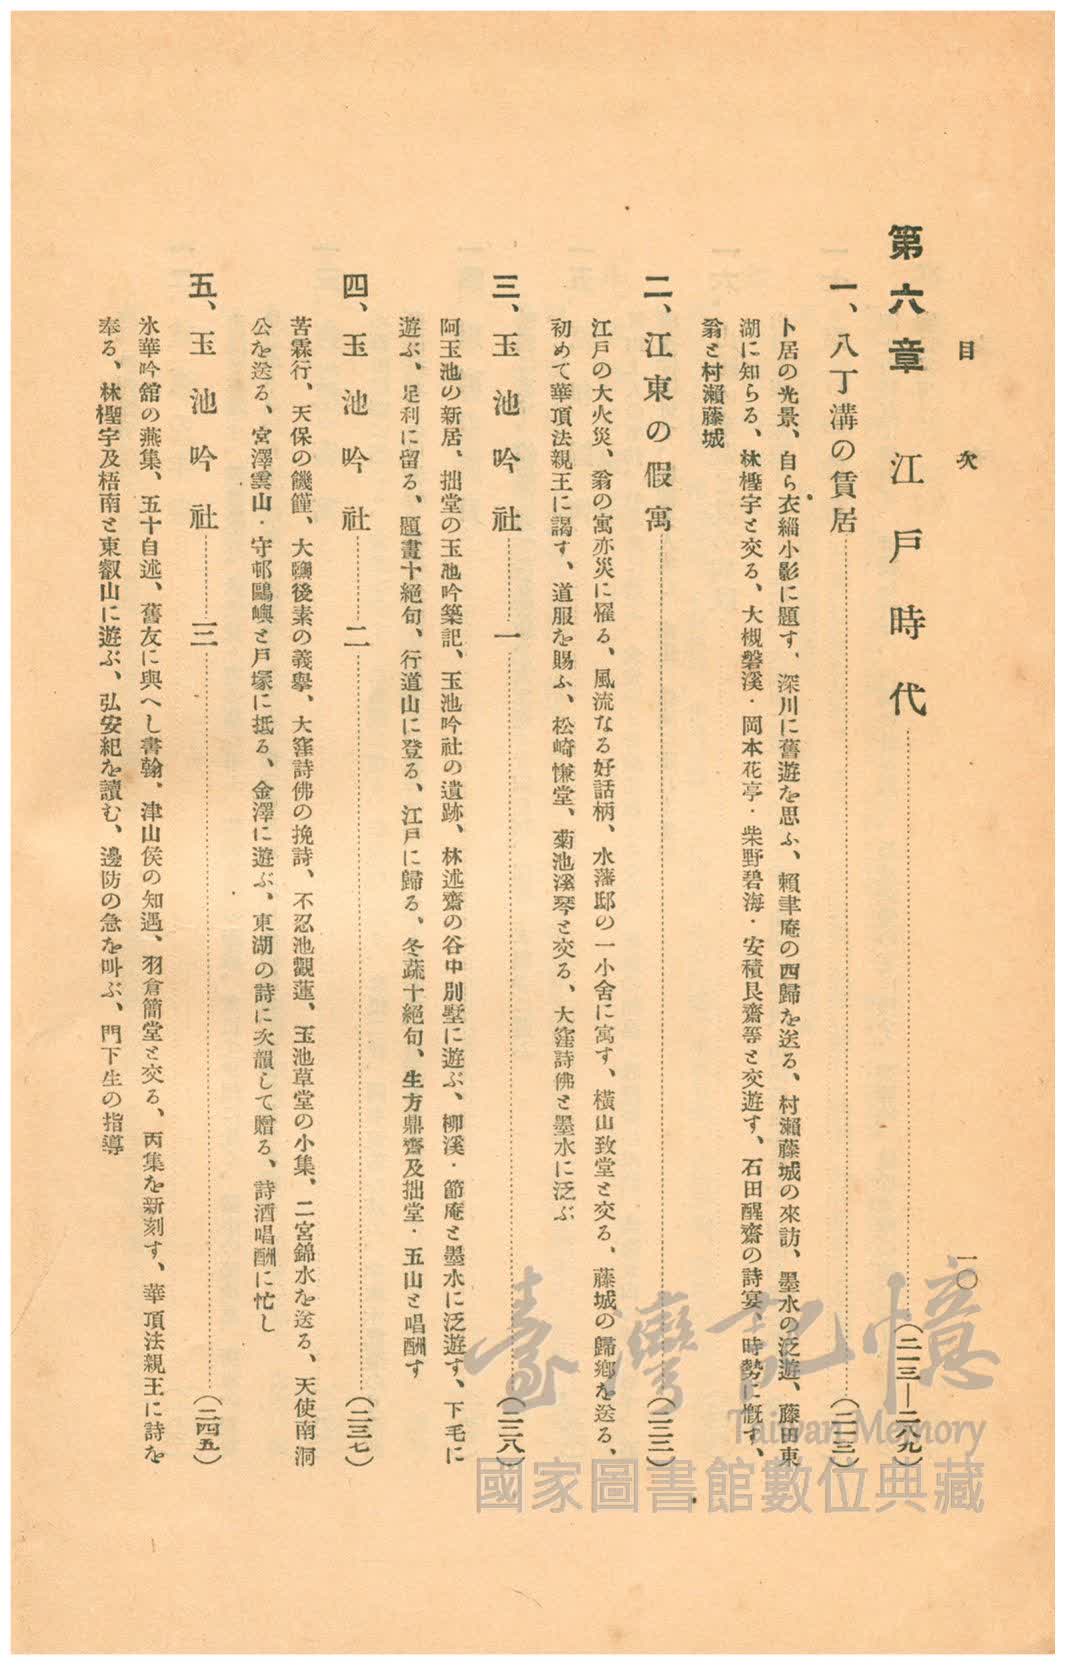 目次
一〇
第六章 江戸時代……(二一三—二八九)
一、八丁溝の賃居……(二一三)
卜居の光景、自ら衣緇小影に題す、深川に舊遊を思ふ、賴聿庵の西歸を送る、村瀨藤城の來訪、墨水の泛遊、藤田東
湖に知らる、林檉宇と交る、大槻磐溪・岡本花亭・柴野碧海・安積艮齋等と交遊す、石田醒齋の詩宴、時勢に慨す、
翁と村瀨藤城
二、江東の假寓……(二二二)
江戸の大火災、翁の寓亦災に罹る、風流なる好話柄、水藩邸の一小舍に寓す、橫山致堂と交る、藤城の歸鄕を送る、
初めて華頂法親王に謁す、道服を賜ふ、松崎慊堂、菊池溪琴と交る、大窪詩佛と墨水に泛ぶ
三、玉池吟社……一……(二二八)
阿玉池の新居、拙堂の玉池吟築記、玉池吟社の遺跡、林述齋の谷中別墅に遊ぶ、柳溪・節庵と墨水に泛遊す、下毛に
遊ぶ、足利に留る、題畫十絕句、行道山に登る、江戸に歸る、冬蔬十絕句、生方鼎齋及拙堂・五山と唱酬す
四、玉池吟社……二……(二三七)
苦霖行、天保の饑饉、大鹽後素の義擧、大窪詩佛の挽詩、不忍池觀蓮、玉池草堂の小集、二宮錦水を送る、天使南洞
公を送る、宮澤雲山・守邨鷗嶼と戸塚に抵る、金澤に遊ぶ、東湖の詩に次韻して贈る、詩酒唱酬に忙し
五、玉池吟社……三……(二四五)
氷華吟舘の燕集、五十自述、舊友に與へし書翰、津山侯の知遇、羽倉簡堂と交る、丙集を新刻す、華頂法親王に詩を
奉る、林檉宇及梧南と東叡山に遊ぶ、弘安紀を讀む、邊防の急を叫ぶ、門下生の指導
臺灣記憶
Taiwan Memory
國家圖書館數位典藏